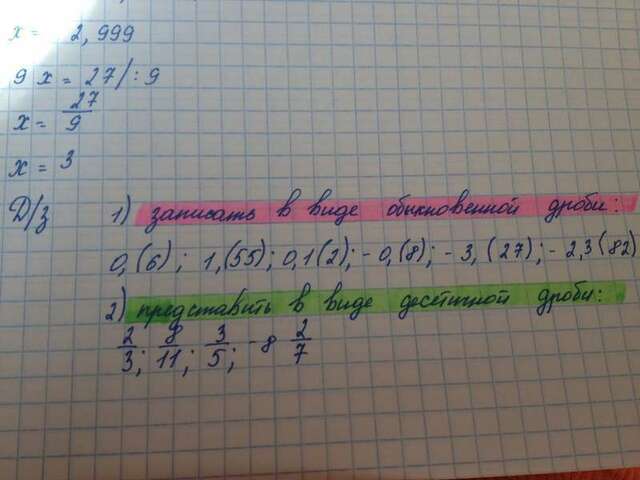 x = 2,999
9x = 27/:9
x = 27/9
x = 3
Д/з 1) записать в виде обыкновенной дроби:
0,(6); 1,(55); 0,1(2); -0,(8); -3,(27); -2,3(82)
2) представить в виде десетичной дроби:
2/3; 8/11; 3/5; -8 2/7